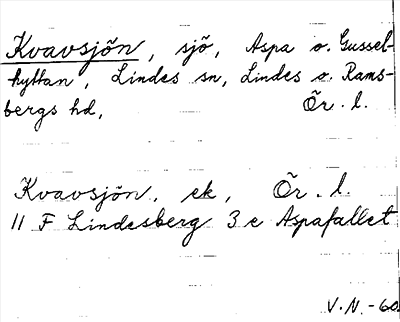 Kvavsjön, sjö, Aspa o. Gussel-
hyttan, Lindes sn, Lindes o. Rams-
bergs hd, Ör. l.
Kvavsjön, ek, Ör. l.
11 F Lindesberg 3 e Aspafallet
V.N.-60